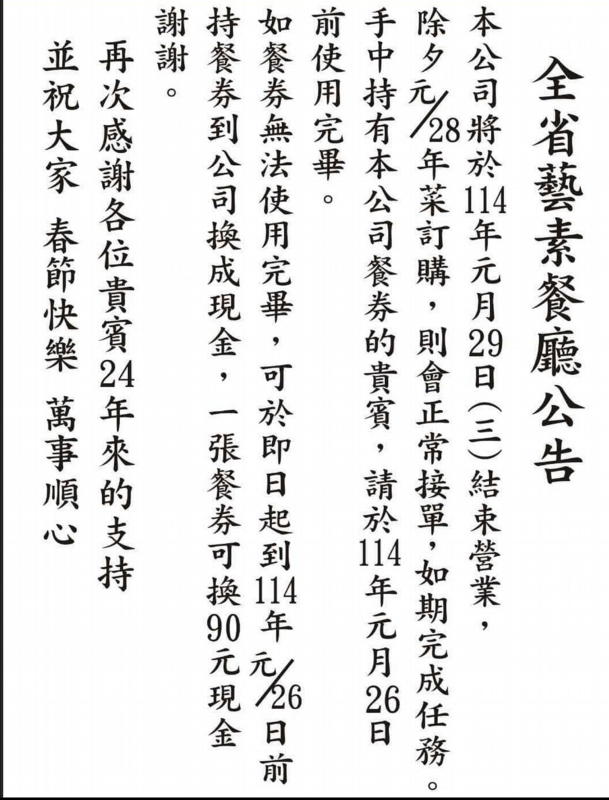 全省藝素餐廳公告
本公司將於114年元月29日(三)結束營業，
除夕元/28年菜訂購，則會正常接單，如期完成任務。
手中持有本公司餐券的貴賓，請於114年元月26日
前使用完畢。
如餐券無法使用完畢，可於即日起到114年元/26日前
持餐券到公司換成現金，一張餐券可換90元現金
謝謝。
再次感謝各位貴賓24年來的支持
並祝大家 春節快樂 萬事順心